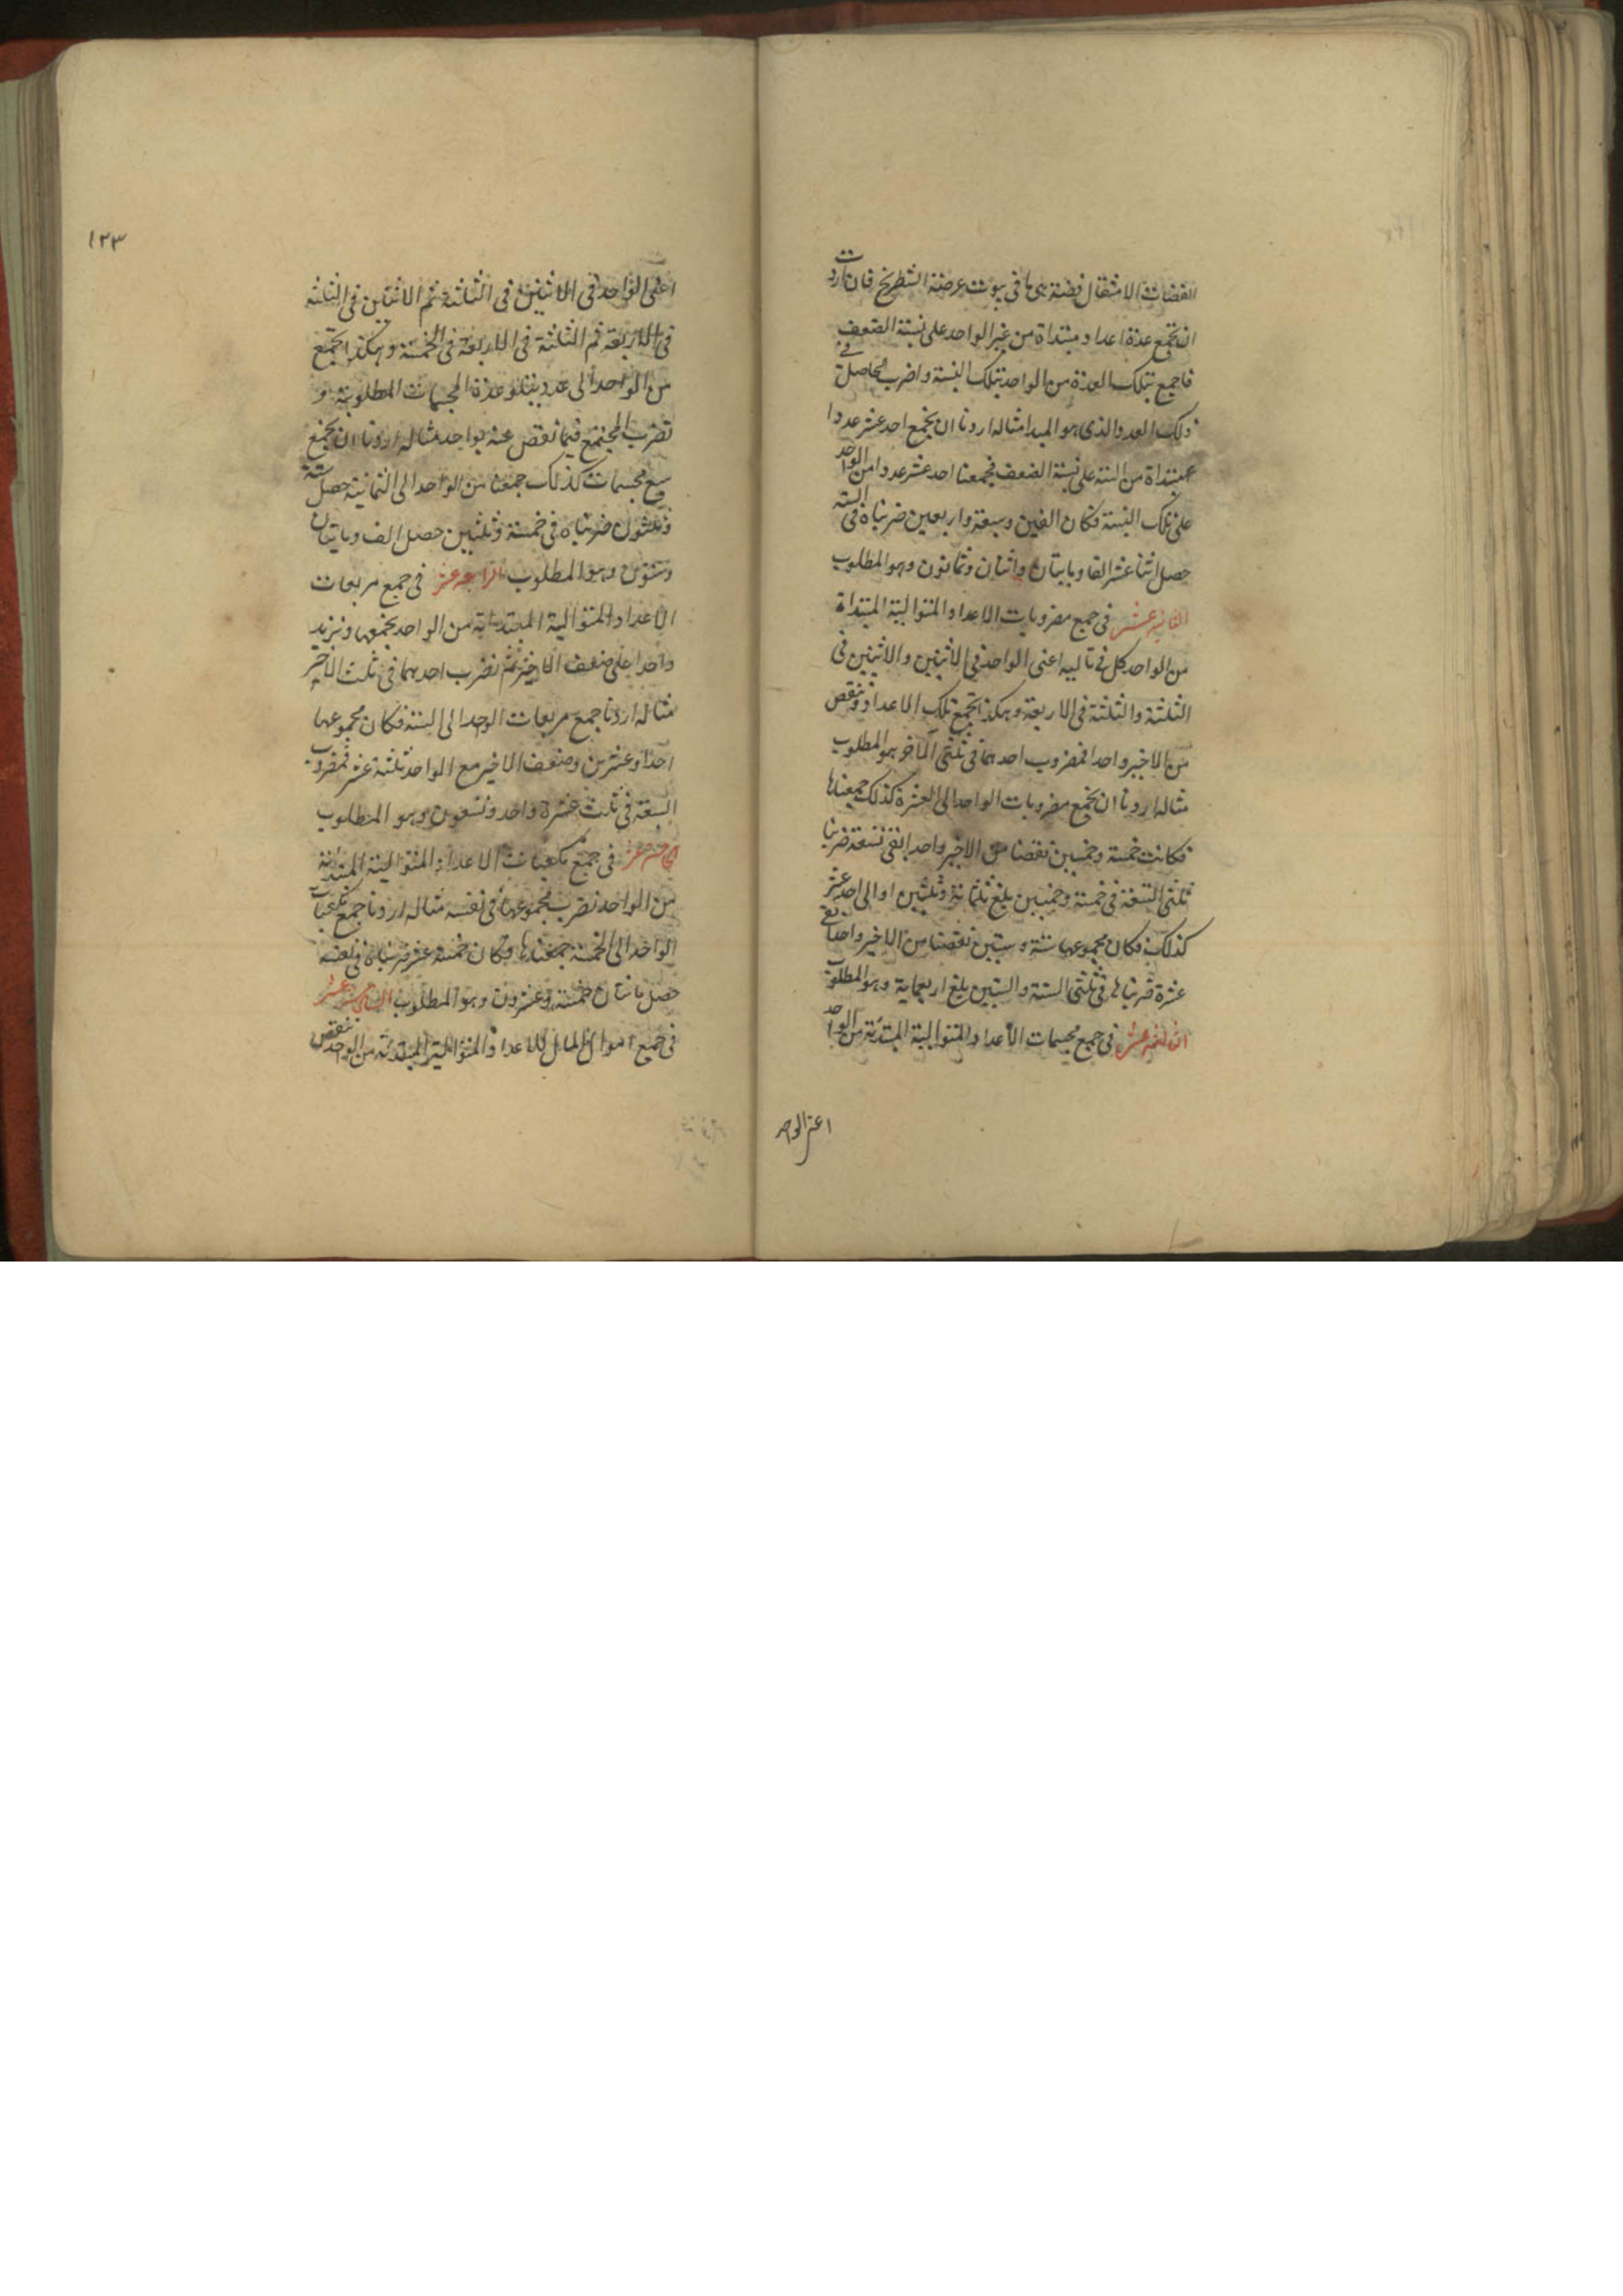 الفضات الامثقال فضة يرى ها في بيوت عرصة الشطرنج فان اردت
ان تجمع عدة اعداد مبتداة من غير الواحد على نسبة الضعف
فاجمع بتلك العدة من الواحد بتلك النسبة واضرب الحاصل في
ذلك العدد الذى هو المبدا مثاله اردنا ان نجمع احد عشر عددا
مبتداة من الستة على نسبة الضعف فجمعنا احد عشر عددا من الواحد
على تلك النسبة فكان الفين وسبعة واربعين ضربناه في الستة
حصل اثنا عشر الفا ومايتان واثنان وثمانون وهو المطلوب
الثانية عشر في جمع مضروبات الاعداد المتوالية المبتداة
من الواحد كل في تاليه اعنى الواحد في الاثنين والاثنين في
الثلثة والثلثة في الاربعة وهكذا نجمع تلك الاعداد وننقص
من الاخير واحدا فمضروب احدهما في ثلثى الآخر هو المطلوب
مثاله اردنا ان نجمع مضروبات الواحد الى العشرة كذلك جمعناها
فكانت خمسة وخمسين نقصنا من الاخير واحدا بقى تسعة ضربنا
ثلثى التسعة في خمسة وخمسين بلغ ثلثماية وثلثين او الى احد عشر
كذلك فكان مجموعها ستة وستين نقصنا من الاخير واحدا بقى
عشرة ضربناها في ثلثى الستة والستين بلغ اربعماية وهو المطلوب
الثالثة عشر في جمع مجسمات الاعداد المتوالية المبتدئة من الواحد
اعنى الواحد
١٢٣
اعنى الواحد في الاثنين في الثلثة ثم الاثنين في الثلثة
في الاربعة ثم الثلثة في الاربعة في الخمسة وهكذا نجمع
من الواحد الى عدد يتلو عدة المجسمات المطلوبة و
نضرب المجتمع فيما نقص عنه بواحد مثاله اردنا ان نجمع
سبع مجسمات كذلك جمعنا من الواحد الى الثمانية حصل ستة
وثلثون ضربناه في خمسة وثلثين حصل الف ومايتان
وستون وهو المطلوب الرابعة عشر في جمع مربعات
الاعداد المتوالية المبتدئة من الواحد نجمعها ونزيد
واحدا على ضعف الاخير ثم نضرب احدهما في ثلث الاخير
مثاله اردنا جمع مربعات الواحد الى الستة فكان مجموعها
احدا وعشرين وضعف الاخير مع الواحد ثلثة عشر فمضروب
السبعة في ثلث عشرة واحد وتسعون وهو المطلوب
الخامسة عشر في جمع مكعبات الاعداد المتوالية المبتدئة
من الواحد نضرب مجموعها في نفسه مثاله اردنا جمع مكعبات
الواحد الى الخمسة جمعناها وكان خمسة عشر ضربناه في نفسه
حصل مائتان خمسة وعشرون وهو المطلوب السادسة عشر
في جمع اموال المال للاعداد المتوالية المبتدئة من الواحد ننقص